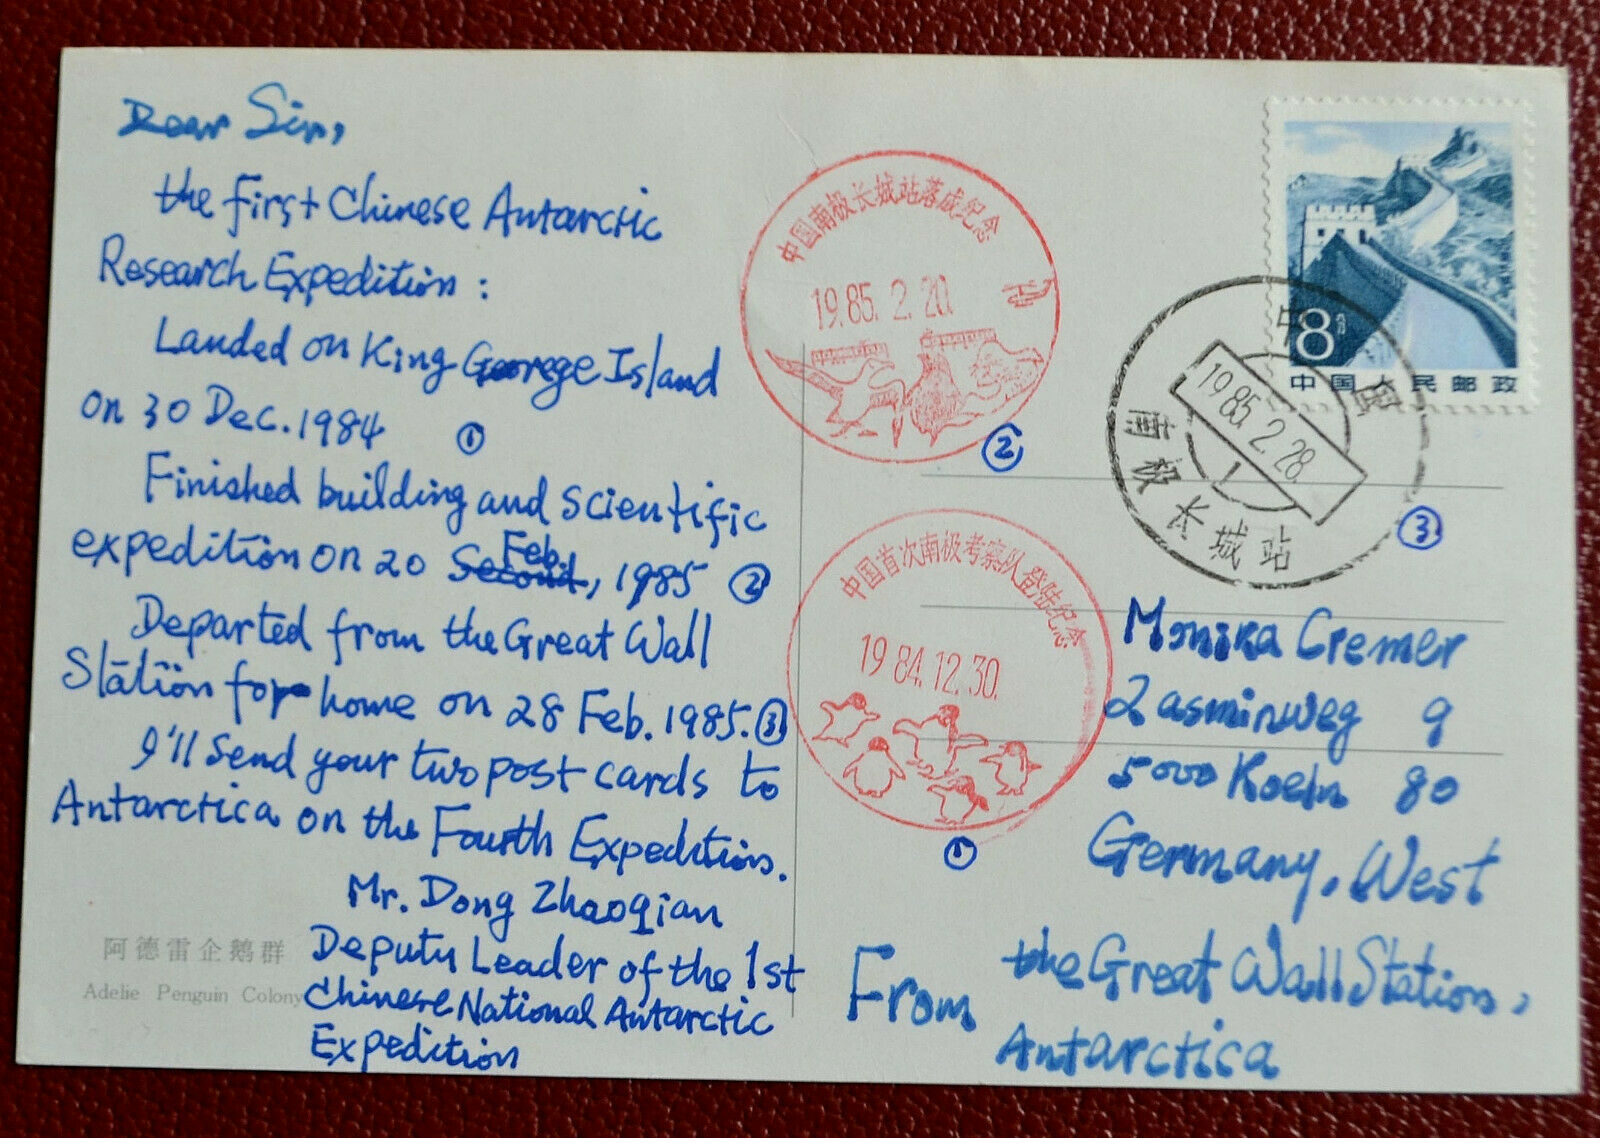 Dear Sir,
the first Chinese Antarctic
Research Expedition:
Landed on King George Island
on 30 Dec. 1984 ①
Finished building and scientific
expedition on 20 Second Feb., 1985 ②
Departed from the Great Wall
Station for home on 28 Feb. 1985. ③
I'll send your two post cards to
Antarctica on the Fourth Expedition.
Mr. Dong Zhaoqian
Deputy Leader of the 1st
Chinese National Antarctic
Expedition
阿德雷企鹅群
Adelie Penguin Colony
中国南极长城站落成纪念
1985.2.20.
②
中国首次南极考察队登陆纪念
1984.12.30.
①
8分
中国人民邮政
中国
1985.2.28
1
南极长城站
③
Monika Cremer
Jasminweg 9
5000 Koeln 80
Germany, West
From the Great Wall Station,
Antarctica